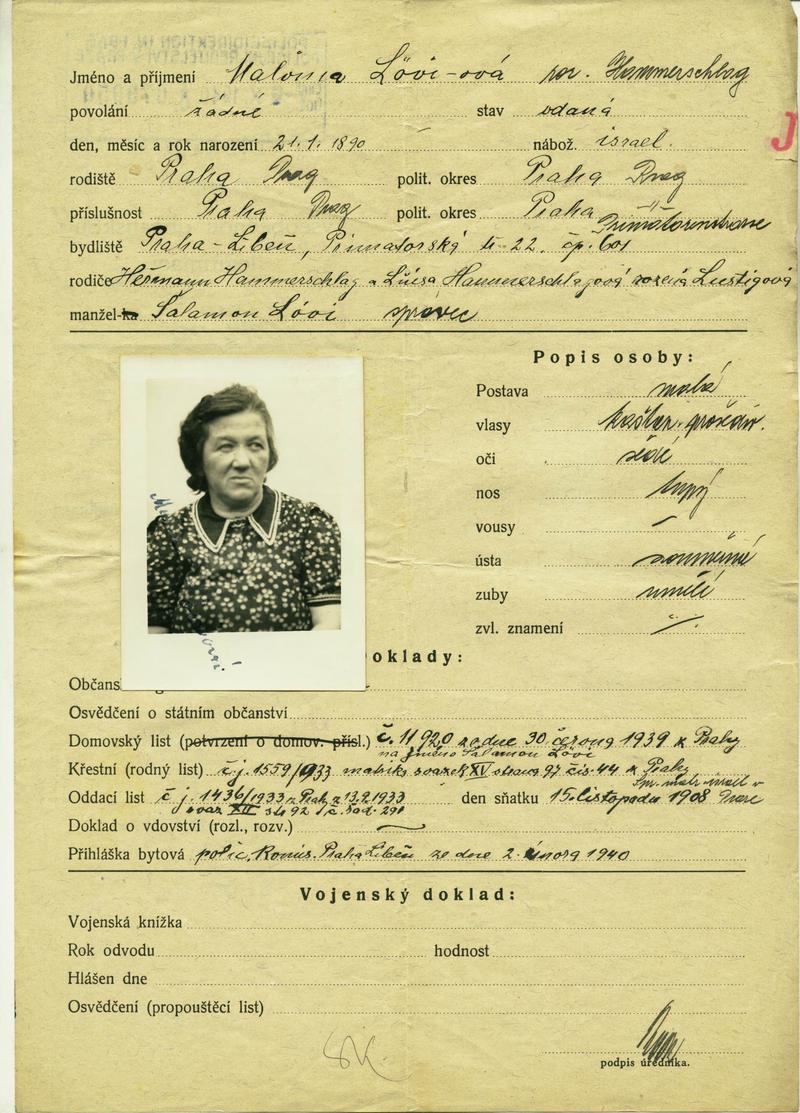 Jméno a příjmení Malvina Lövi-ová roz. Hammerschlag
povolání žádné stav vdaná
den, měsíc a rok narození 21. 1. 1890 nábož. israel.
J
rodiště Praha Prag polit. okres Praha Prag
příslušnost Praha Prag polit. okres Praha "
Primatorenstrasse
bydliště Praha-Libeň, Primátorská tř. 22. čp. 601
rodiče Heřmann Hammerschlag a Luisa Hammerschlagová rozená Lustigová
manžel-ka Salamon Lövi správec
Popis osoby:
Postava malá
vlasy kaštan. prošediv.
oči šedé
nos tupý
vousy –
ústa souměrné
zuby umělé
zvl. znamení ./.
oklady:
Občans
Osvědčení o státním občanství
Domovský list (potvrzení o domov. přísl.) č. 11920 ze dne 30 června 1939 z Prahy
na jméno Salamon Lövi
Křestní (rodný list) č.j. 1559/1933 matriky svazek XV strana 97 čís. 44 z Prahy
Oddací list č j. 1436/1933 z Prahy z 13.9.1933 den sňatku 15. listopadu 1908
svaz. XII str. 92 č. řad. 291
Doklad o vdovství (rozl., rozv.)
Přihláška bytová polic. komis. Praha Libeň ze dne 2. února 1940
Vojenský doklad:
Vojenská knížka
Rok odvodu hodnost
Hlášen dne
Osvědčení (propouštěcí list)
podpis úředníka.